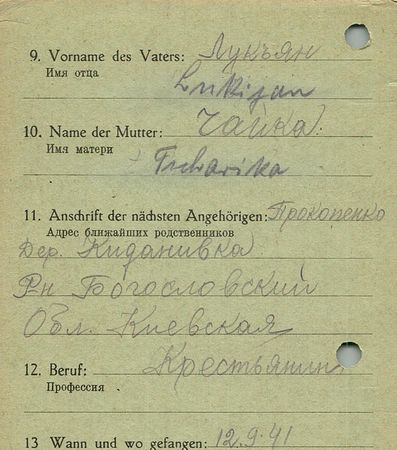 9. Vorname des Vaters: Лукъян
Имя отца
Lukijan
10. Name der Mutter: Чайка
Имя матери
Tschaika
11. Anschrift der nächsten Angehörigen: Прокопенко
Адрес ближайших родственников
Дер. Киданивка
Р-н Богославский
Обл. Киевская
12. Beruf: Крестьянин
Профессия
13 Wann und wo gefangen: 12.9.41